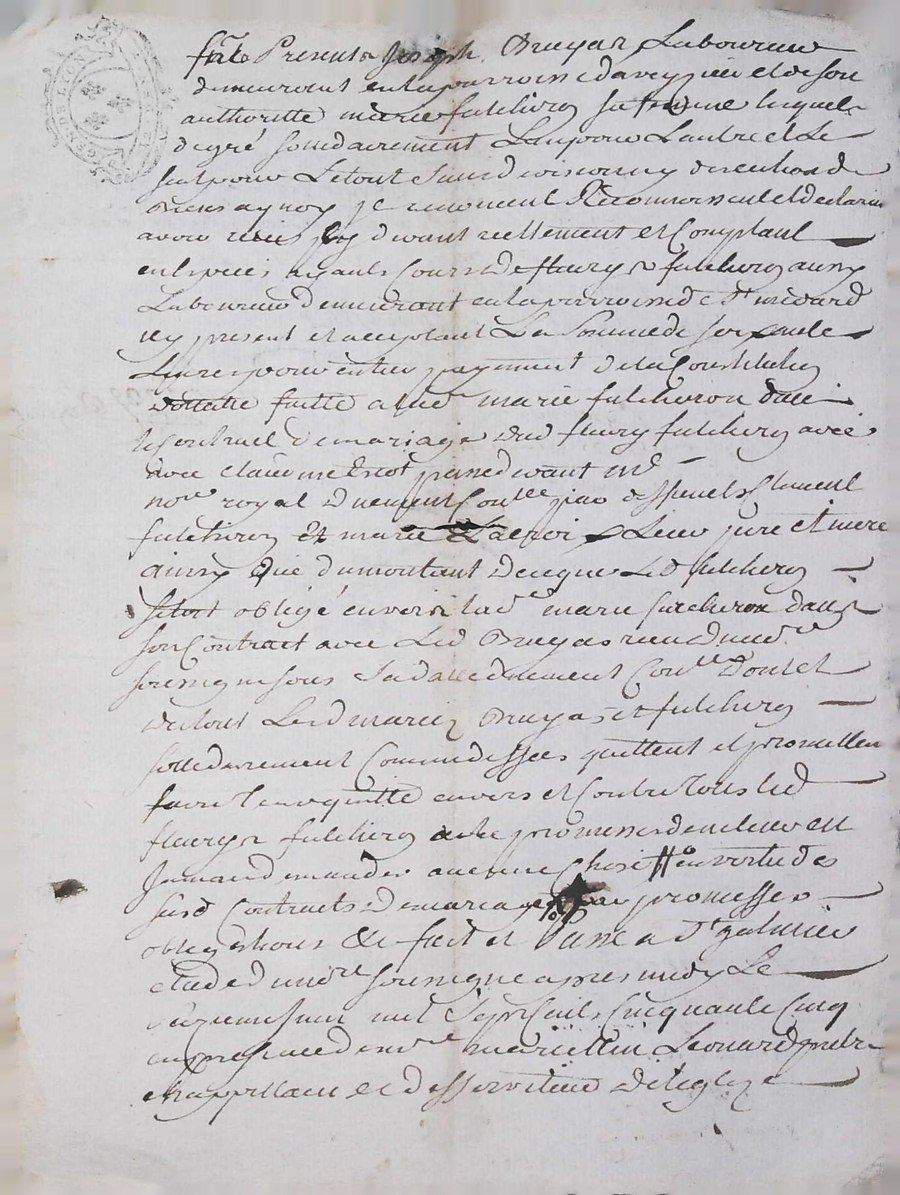 fut Present Joseph Bruyas Laboureur
demeurant en la parroisse d'aveyzieu et de son
authoritté marie fulchiron sa femme lequels
de gré solidairement L'un pour L'autre et Le
seul pour Le tout sans division ny discution de
biens a quoy je renoncent Reconnoissent et declarent
avoir receu cy devant reellement et Comptant
en especes ayants Cours de fleury fulchiron aussy
Laboureur demeurant en la parroisse de St medard
icy present et acceptant La Somme de soixante
Livres pour entier payement de la Constitution
dottalle faitte a lad marie fulchiron dans
le Contract de mariage dud fleury fulchiron avec
avec claudine passé devant me
nore royal duement Conllé par Clement
fulchiron Et marie Lacroix Leur pere et mere
ainsy que du montant de ce que Led fulchiron
setoit obligé envers lad marie fulchiron dans
son Contract avec Led Bruyas receu du nore
soussigné sous sa datte duement Conllé Dont et
du tout Lesd mariez Bruyas et fulchiron
sollidairement Comme dessus quittent et promettent
faire tenir quitte envers et Contre tous led
fleury fulchiron avec promesse de ne leur en
Jamais demander aucune Chose en vertu des
susd Contracts de mariage par promesses
obligations &c fait et Passé a St galmier
etude du nore soussigné apres midy Le
mil Sept Cent Cinquante Cinq
en presence de mre marcellin Leonard pretre
chappellain et desserviteur de leglize